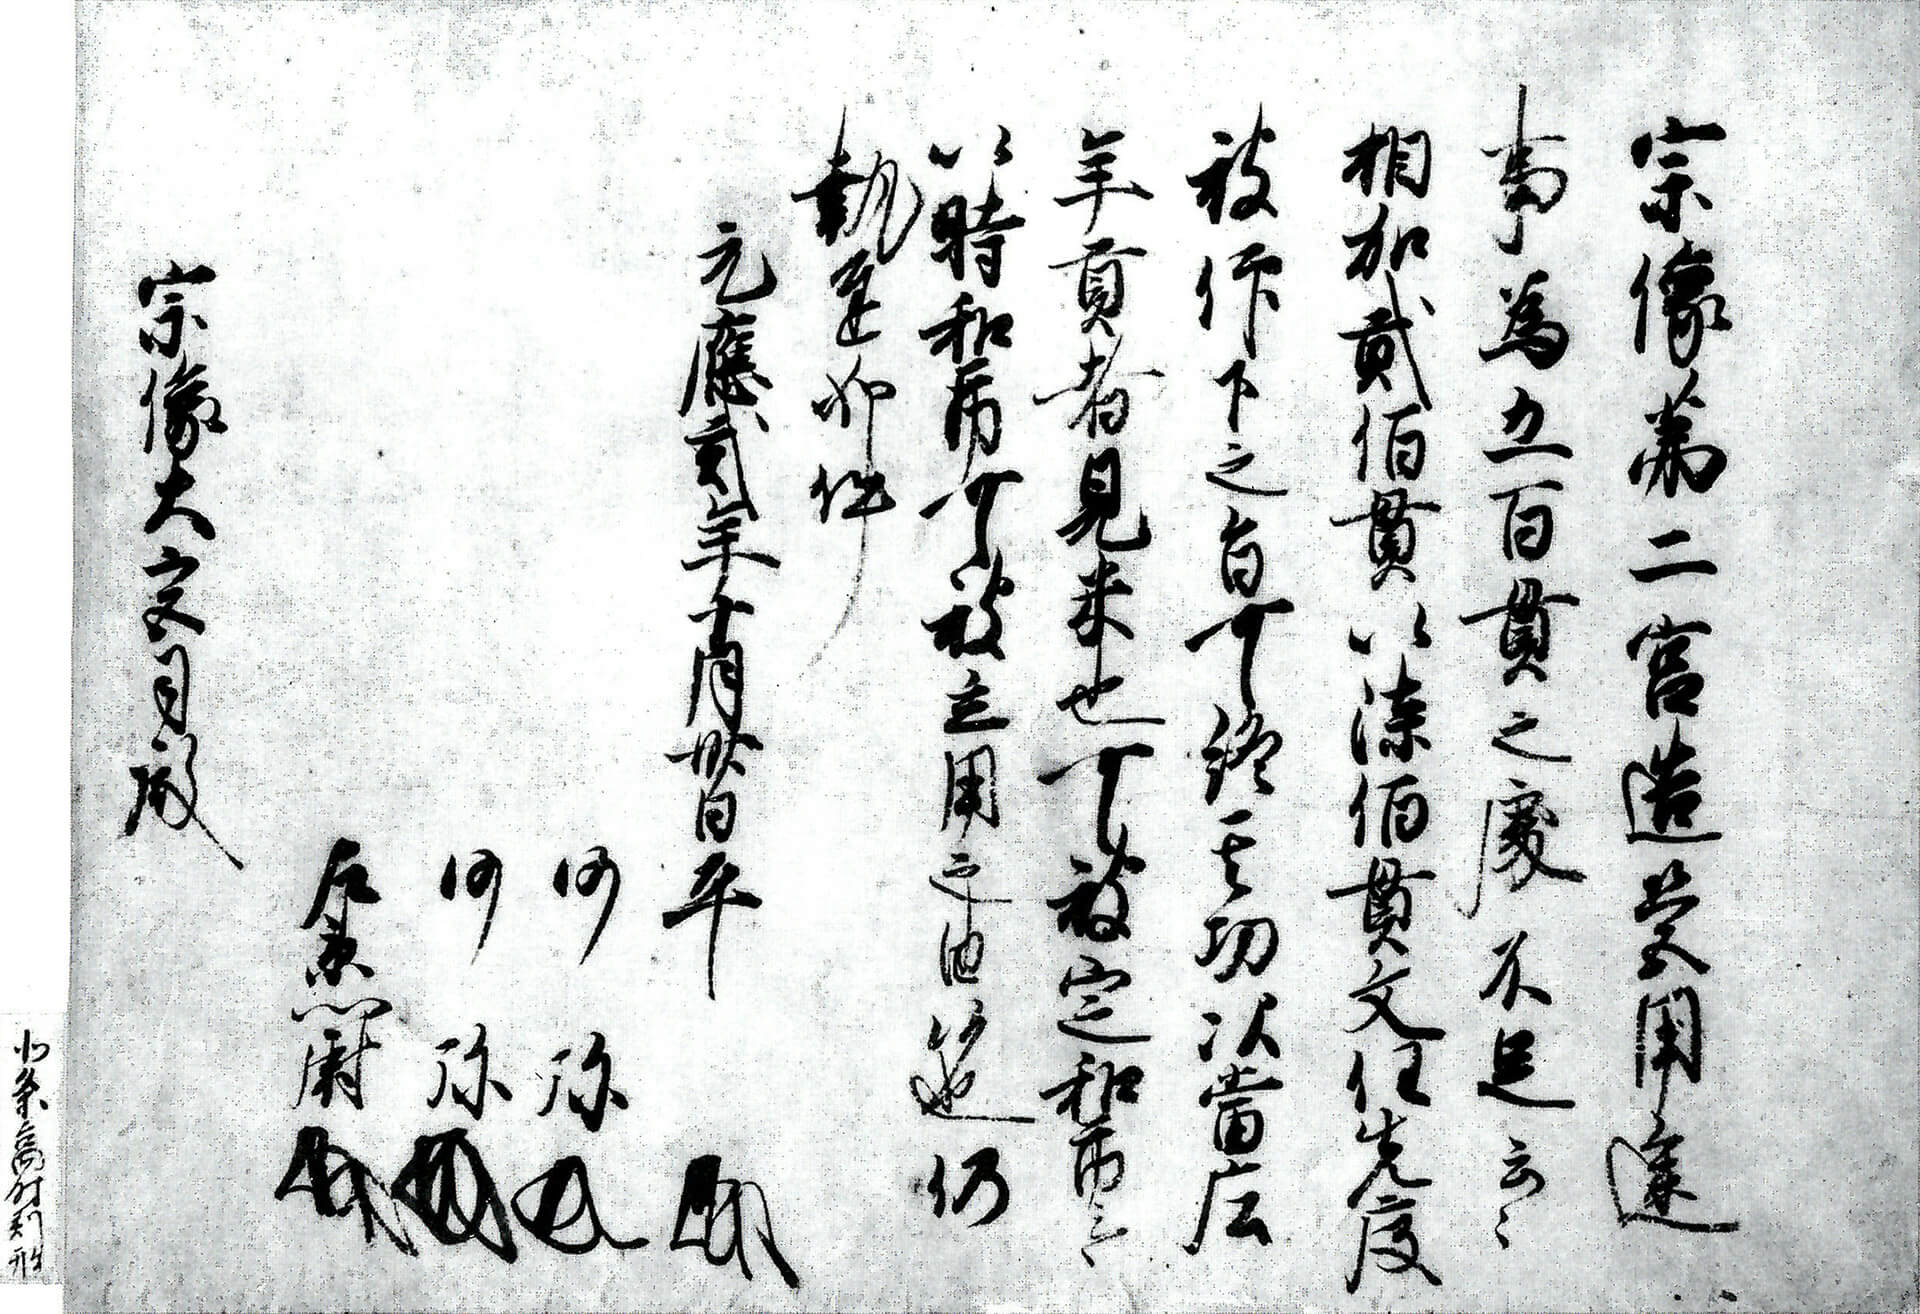 宗像第二宮造営用途
事為五百貫之處不足云々
相加貳佰貫以漆佰貫文任先度
被仰下之旨可終其功次當庄
年貢者見米也可被定和市云々
以時和市可被立用之由候也仍
執達如件
元應貳年十月廿日
沙弥
沙弥
左兵衛尉
宗像大宮司殿